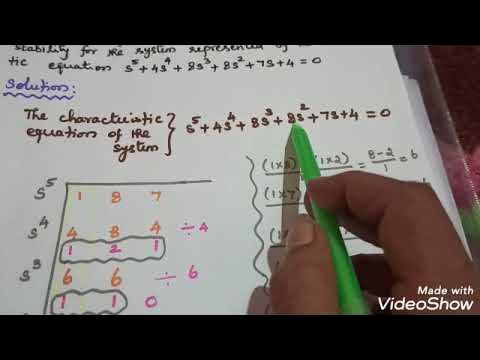 stability for the system represented
tic equation s⁵ + 4s⁴ + 8s³ + 8s² + 7s + 4 = 0
Solution:
The characteristic
equations of the
system } s⁵ + 4s⁴ + 8s³ + 8s² + 7s + 4 = 0
s⁵ 1 8 7
s⁴ 4 8 4 ÷4
1 2 1
s³ 6 6 ÷ 6
1 1 0
(1×8) (1×2) = 8-2/1 = 6
(1×7)
Made with
VideoShow